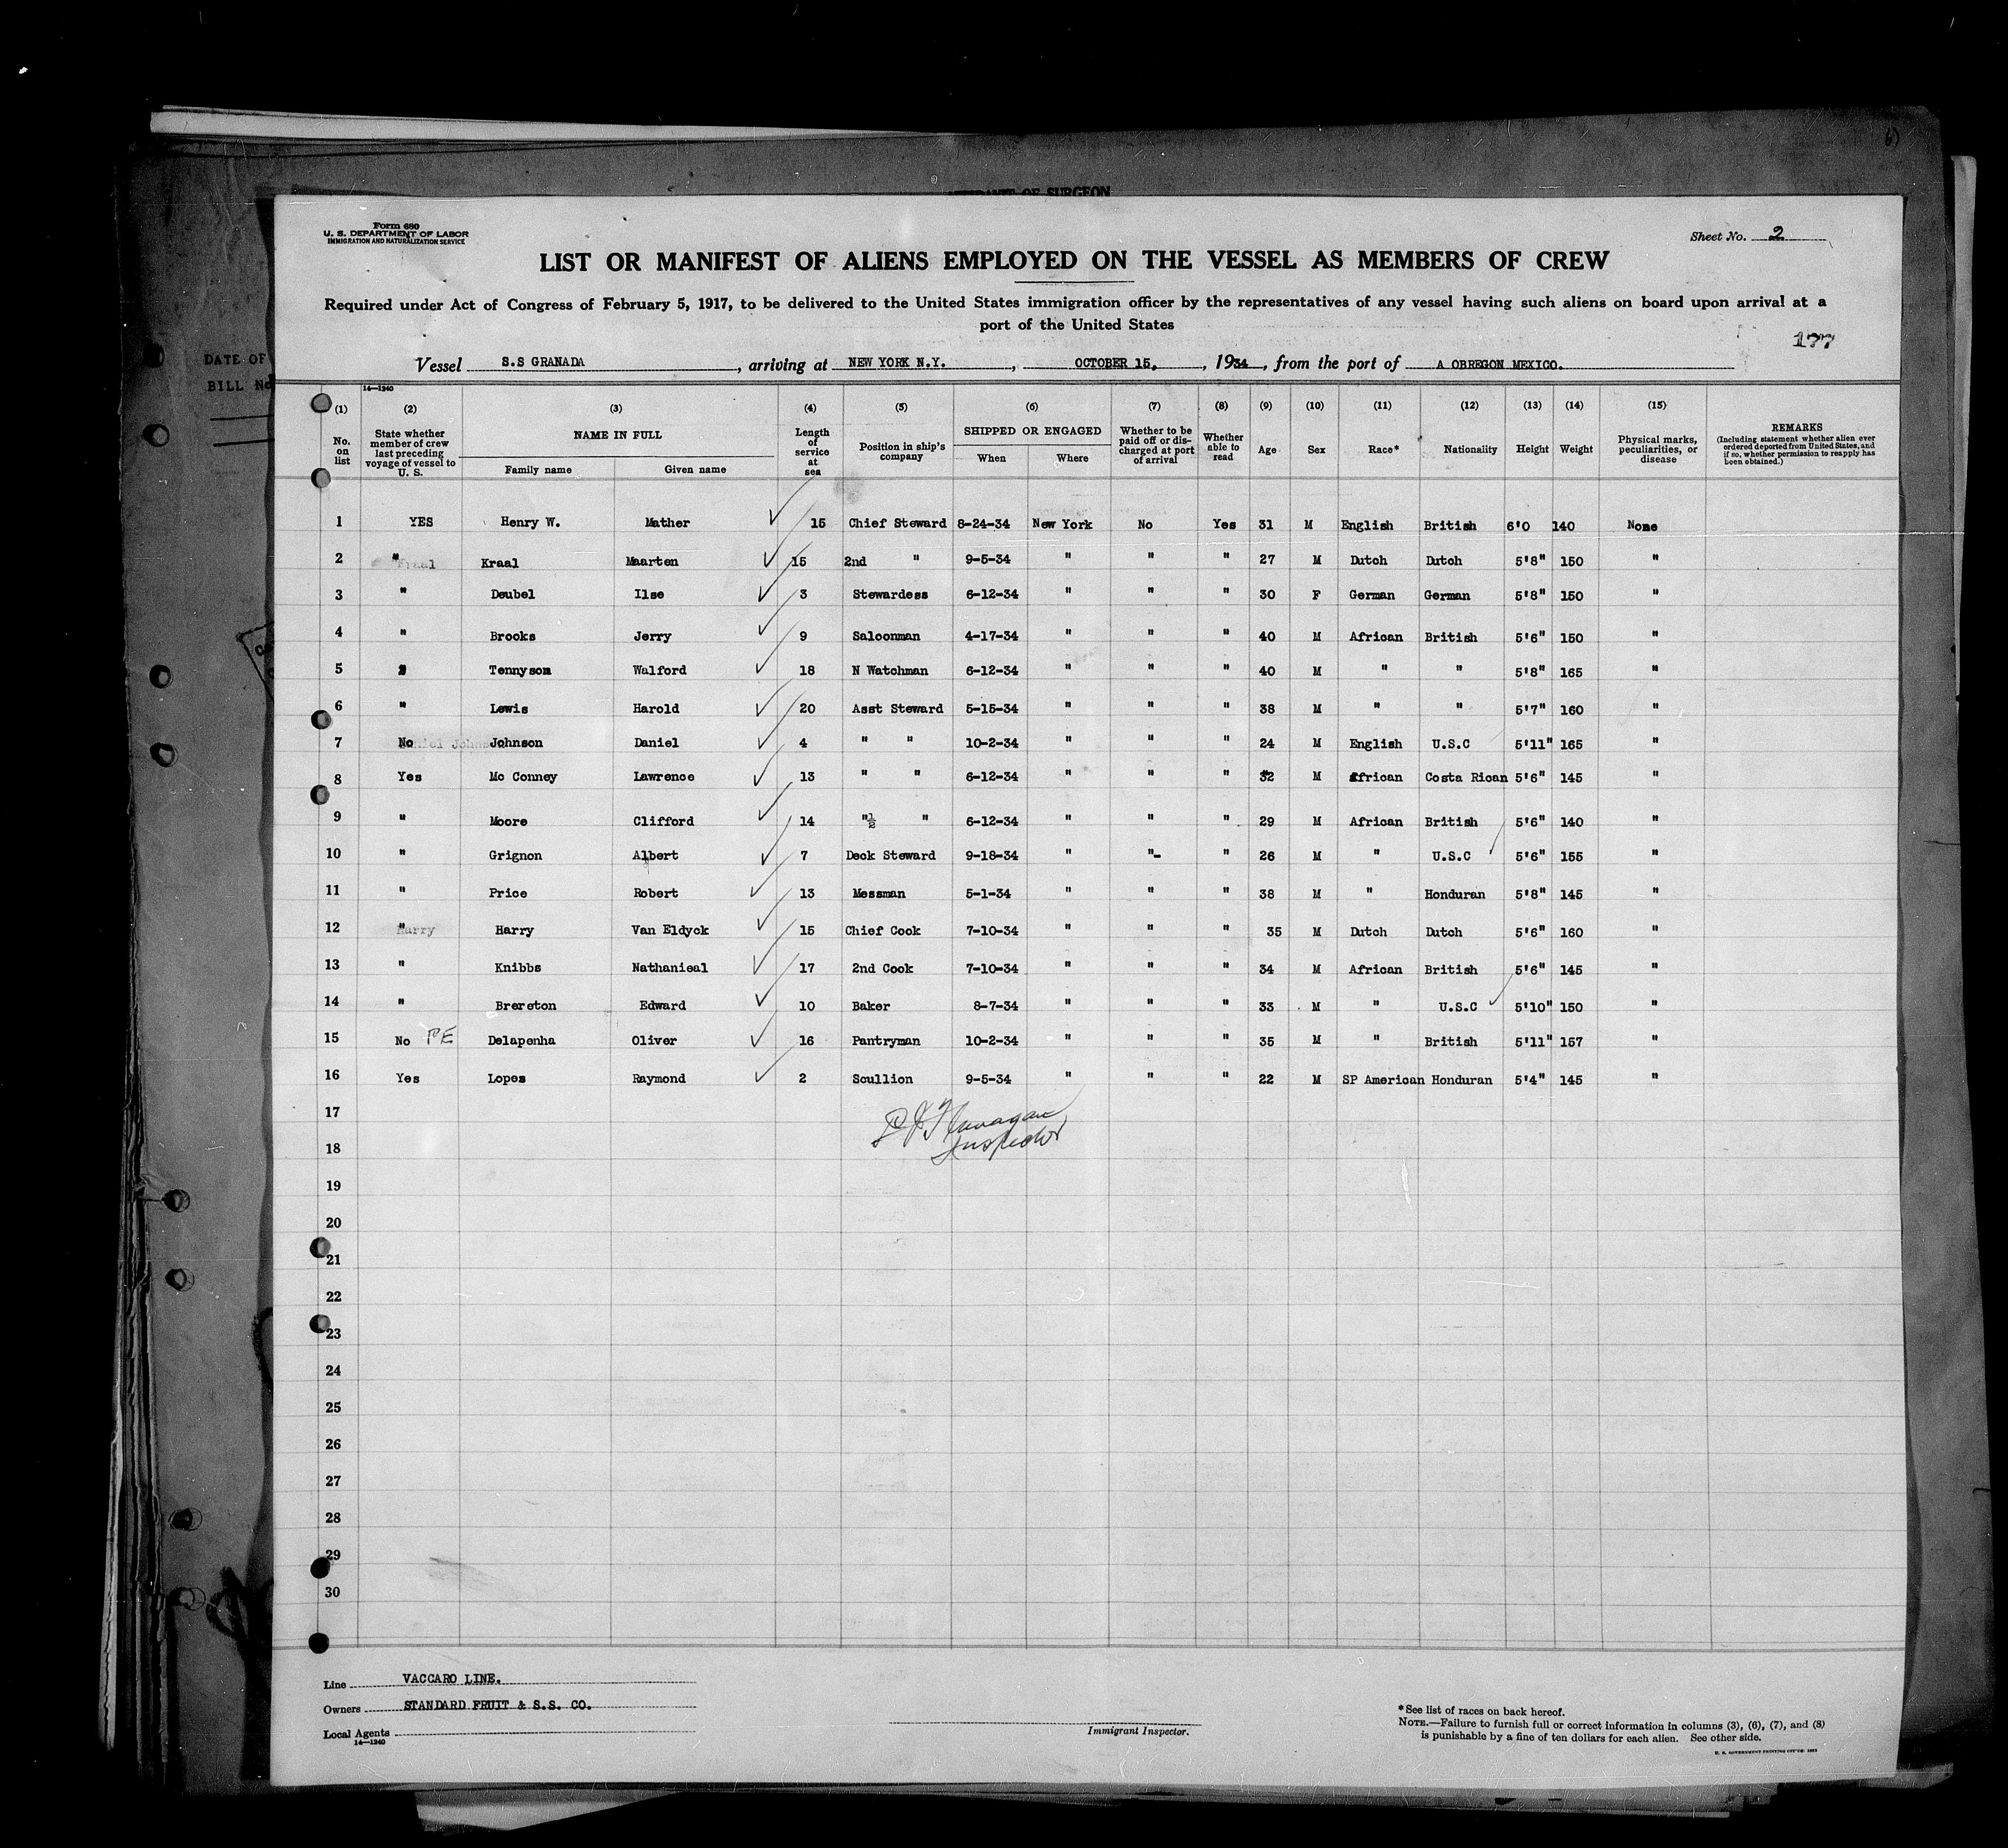 6)
AFFIDAVIT OF SURGEON
DATE OF
BILL No
Form 680
U. S. DEPARTMENT OF LABOR
IMMIGRATION AND NATURALIZATION SERVICE
Sheet No. 2
LIST OR MANIFEST OF ALIENS EMPLOYED ON THE VESSEL AS MEMBERS OF CREW
Required under Act of Congress of February 5, 1917, to be delivered to the United States immigration officer by the representatives of any vessel having such aliens on board upon arrival at a
port of the United States
177
Vessel S.S GRANADA, arriving at NEW YORK N.Y., OCTOBER 15,, 1934, from the port of A OBREGON MEXICO.
14—1240
(1) (2) (3) (4) (5) (6) (7) (8) (9) (10) (11) (12) (13) (14) (15)
No. on list State whether member of crew last preceding voyage of vessel to U. S. NAME IN FULL Family name Given name Length of service at sea Position in ship's company SHIPPED OR ENGAGED When Where Whether to be paid off or discharged at port of arrival Whether able to read Age Sex Race* Nationality Height Weight Physical marks, peculiarities, or disease REMARKS (Including statement whether alien ever ordered deported from United States, and if so, whether permission to reapply has been obtained.)
1 YES Henry W. Mather 15 Chief Steward 8-24-34 New York No Yes 31 M English British 6'0 140 None
2 " Kraal Maarten 15 2nd " 9-5-34 " " " 27 M Dutch Dutch 5'8" 150 "
3 " Deubel Ilse 3 Stewardess 6-12-34 " " " 30 F German German 5'8" 150 "
4 " Brooks Jerry 9 Saloonman 4-17-34 " " " 40 M African British 5'6" 150 "
5 " Tennyson Walford 18 N Watchman 6-12-34 " " " 40 M " " 5'8" 165 "
6 " Lewis Harold 20 Asst Steward 5-15-34 " " " 38 M " " 5'7" 160 "
7 No Johnson Daniel 4 " " 10-2-34 " " " 24 M English U.S.C 5'11" 165 "
8 Yes Mc Conney Lawrence 13 " " 6-12-34 " " " 32 M African Costa Rican 5'6" 145 "
9 " Moore Clifford 14 "½ " 6-12-34 " " " 29 M African British 5'6" 140 "
10 " Grignon Albert 7 Deck Steward 9-18-34 " "- " 26 M " U.S.C 5'6" 155 "
11 " Price Robert 13 Messman 5-1-34 " " " 38 M " Honduran 5'8" 145 "
12 " Harry Van Eldyck 15 Chief Cook 7-10-34 " " " 35 M Dutch Dutch 5'6" 160 "
13 " Knibbs Nathanieal 17 2nd Cook 7-10-34 " " " 34 M African British 5'6" 145 "
14 " Brereton Edward 10 Baker 8-7-34 " " " 33 M " U.S.C 5'10" 150 "
15 No PE Delapenha Oliver 16 Pantryman 10-2-34 " " " 35 M " British 5'11" 157 "
16 Yes Lopes Raymond 2 Scullion 9-5-34 " " " 22 M SP American Honduran 5'4" 145 "
17
Flanagan
18
Inspector
19
20
21
22
23
24
25
26
27
28
29
30
Line VACCARO LINE.
Owners STANDARD FRUIT & S.S. CO.
Local Agents
14—1240
Immigrant Inspector.
*See list of races on back hereof.
NOTE.—Failure to furnish full or correct information in columns (3), (6), (7), and (8)
is punishable by a fine of ten dollars for each alien. See other side.